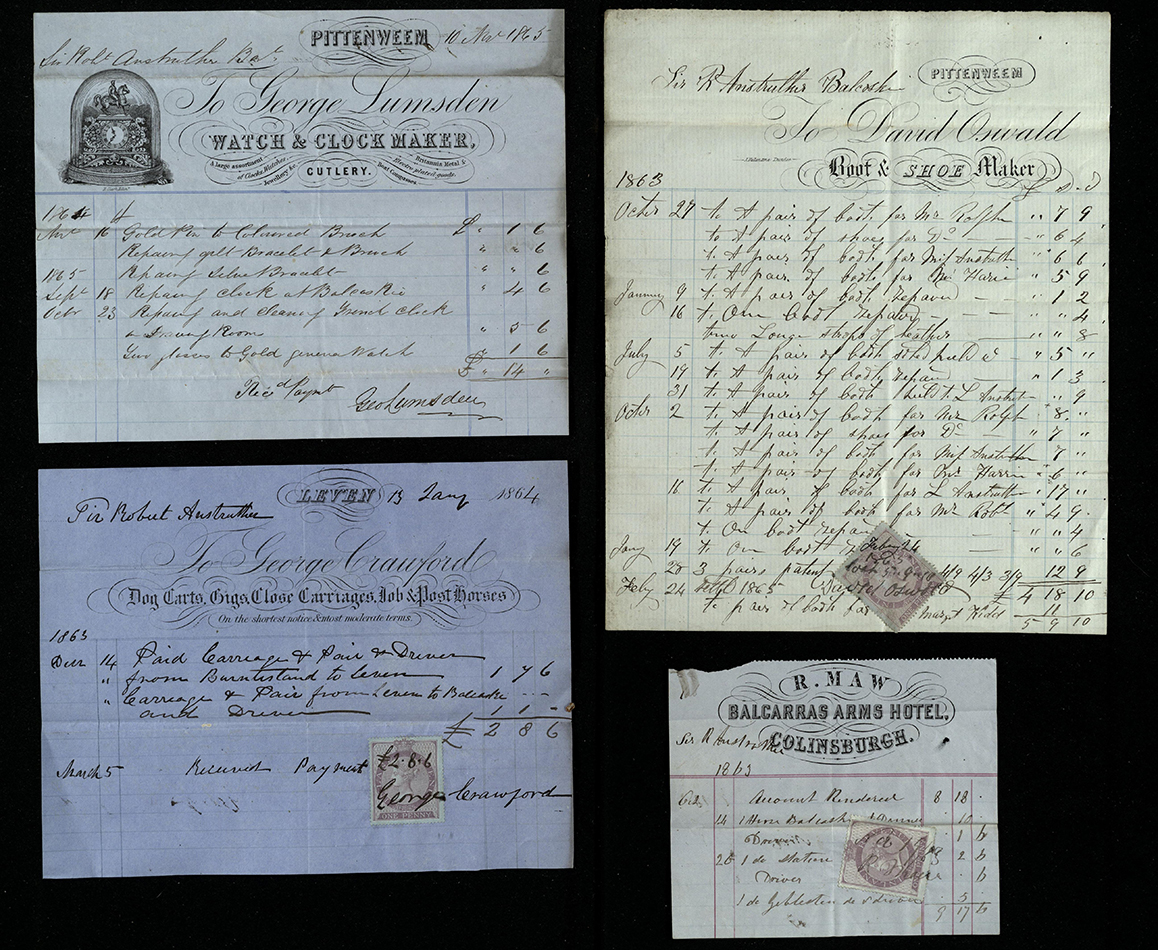 PITTENWEEM 10 Nov 1865
Sir Robt Anstruther Bart
To George Lumsden
WATCH & CLOCK MAKER,
A large assortment of Clocks, Watches, Jewellery &c.
CUTLERY.
Electro-plated goods, Britannia Metal & Boat Compasses.
1864
16 Gold Pin to Coloured Brooch £ " 1 6
Repairing gilt Bracelet & Brooch " " 6
1865 Repairing Bracelet " " 6
Sept 18 Repairing clock at Balcaskie " 4 6
Octr 23 Repairing and cleaning French clock
in Drawing Room " 5 6
Two glasses to Gold geneva Watch " 1 6
£ " 14 "
Recd Paymt
Geo Lumsden
PITTENWEEM
Sir R Anstruther Balcaskie
To David Oswald
Boot & SHOE Maker
1863 £ S D
Octbr 29 to A pair of boots for Mr Rolph " 7 9
to A pair of shoes for Do " 6 4
to A pair of boots for Miss Anstruth " 6 6
to A pair of boots for Mr Harrie " 5 9
January 9 to A pair of boots repaird " 1 2
16 to One boot repaird " " 4
two Longe straps of leather " " 8
July 5 to A pair of boots " 5 "
19 to A pair of boots repair " 1 3
31 to A pair of boots L Anstrut " " 9
Octbr 2 to A pair of boots for Mr Rolph " 8 "
to A pair of shoes for Do " 7 "
to A pair of boots for Miss Anstruth " 7 "
to A pair of boots for Mr Harrie " 6 "
16 to A pair of boots for L Anstruth " 17 "
to A pair of boots for Mr Robt " 4 9
to On boot repair " " 4
Jany 19 to On boot " " 6
20 3 pairs patent 4/9 4/3 3/9 " 12 9
Feby 24 1865 £ 4 18 10
Feby 24
David Oswald
to pair of boots for Margt 11
5 9 10
LEVEN 13 Jany 1864
Sir Robert Anstruther
To George Crawford
Dog Carts, Gigs, Close Carriages, Job & Post Horses
On the shortest notice & most moderate terms.
1863
Decr 14 Paid Carriage & Pair & Driver
from Burntisland to Leven 1 7 6
" Carriage & Pair from Leven to Balcaskie
and Driver 1 1 -
£ 2 8 6
March 5 Received Payment
£2.8.6
George Crawford
ONE PENNY
R. MAW
BALCARRAS ARMS HOTEL,
COLINSBURGH.
Sir R Anstruther
1863
Account Rendered 8 18 .
14 1 Horse Balcaskie & Dinner 10 .
Driver 1 6
20 1 do Station 2 6
Driver 6
1 do 5 .
9 17 6